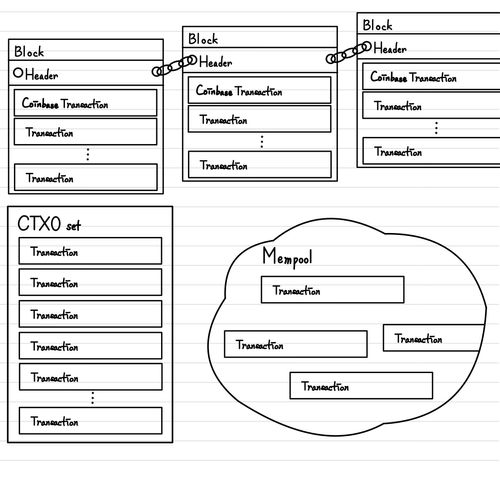 Block
Header
Coinbase Transaction
Transaction
Transaction
Block
Header
Coinbase Transaction
Transaction
Transaction
Block
Header
Coinbase Transaction
Transaction
Transaction
CTXO set
Transaction
Transaction
Transaction
Transaction
Transaction
Transaction
Mempool
Transaction
Transaction
Transaction
Transaction